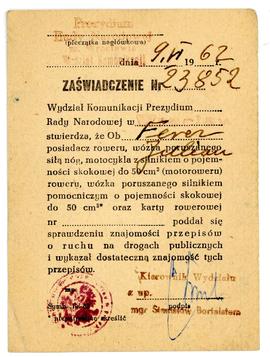 Prezydium
(pieczątka nagłówkowa)
dnia 9.VI 1962
ZAŚWIADCZENIE Nr 23852
Wydział Komunikacji Prezydium
Rady Narodowej w
stwierdza, że Ob.
posiadacz roweru, wózka poruszanego
siłą nóg, motocykla z silnikiem o pojemności
skokowej do 50 cm³ (motoroweru)
roweru, wózka poruszanego silnikiem
pomocniczym o pojemności skokowej
do 50 cm³* oraz karty rowerowej
nr poddał się
sprawdzeniu znajomości przepisów
o ruchu na drogach publicznych
i wykazał dostateczną znajomość tych
przepisów.
Kierownik Wydziału
z up.
podpis
mgr Stanisław
niepotrzebne skreślić